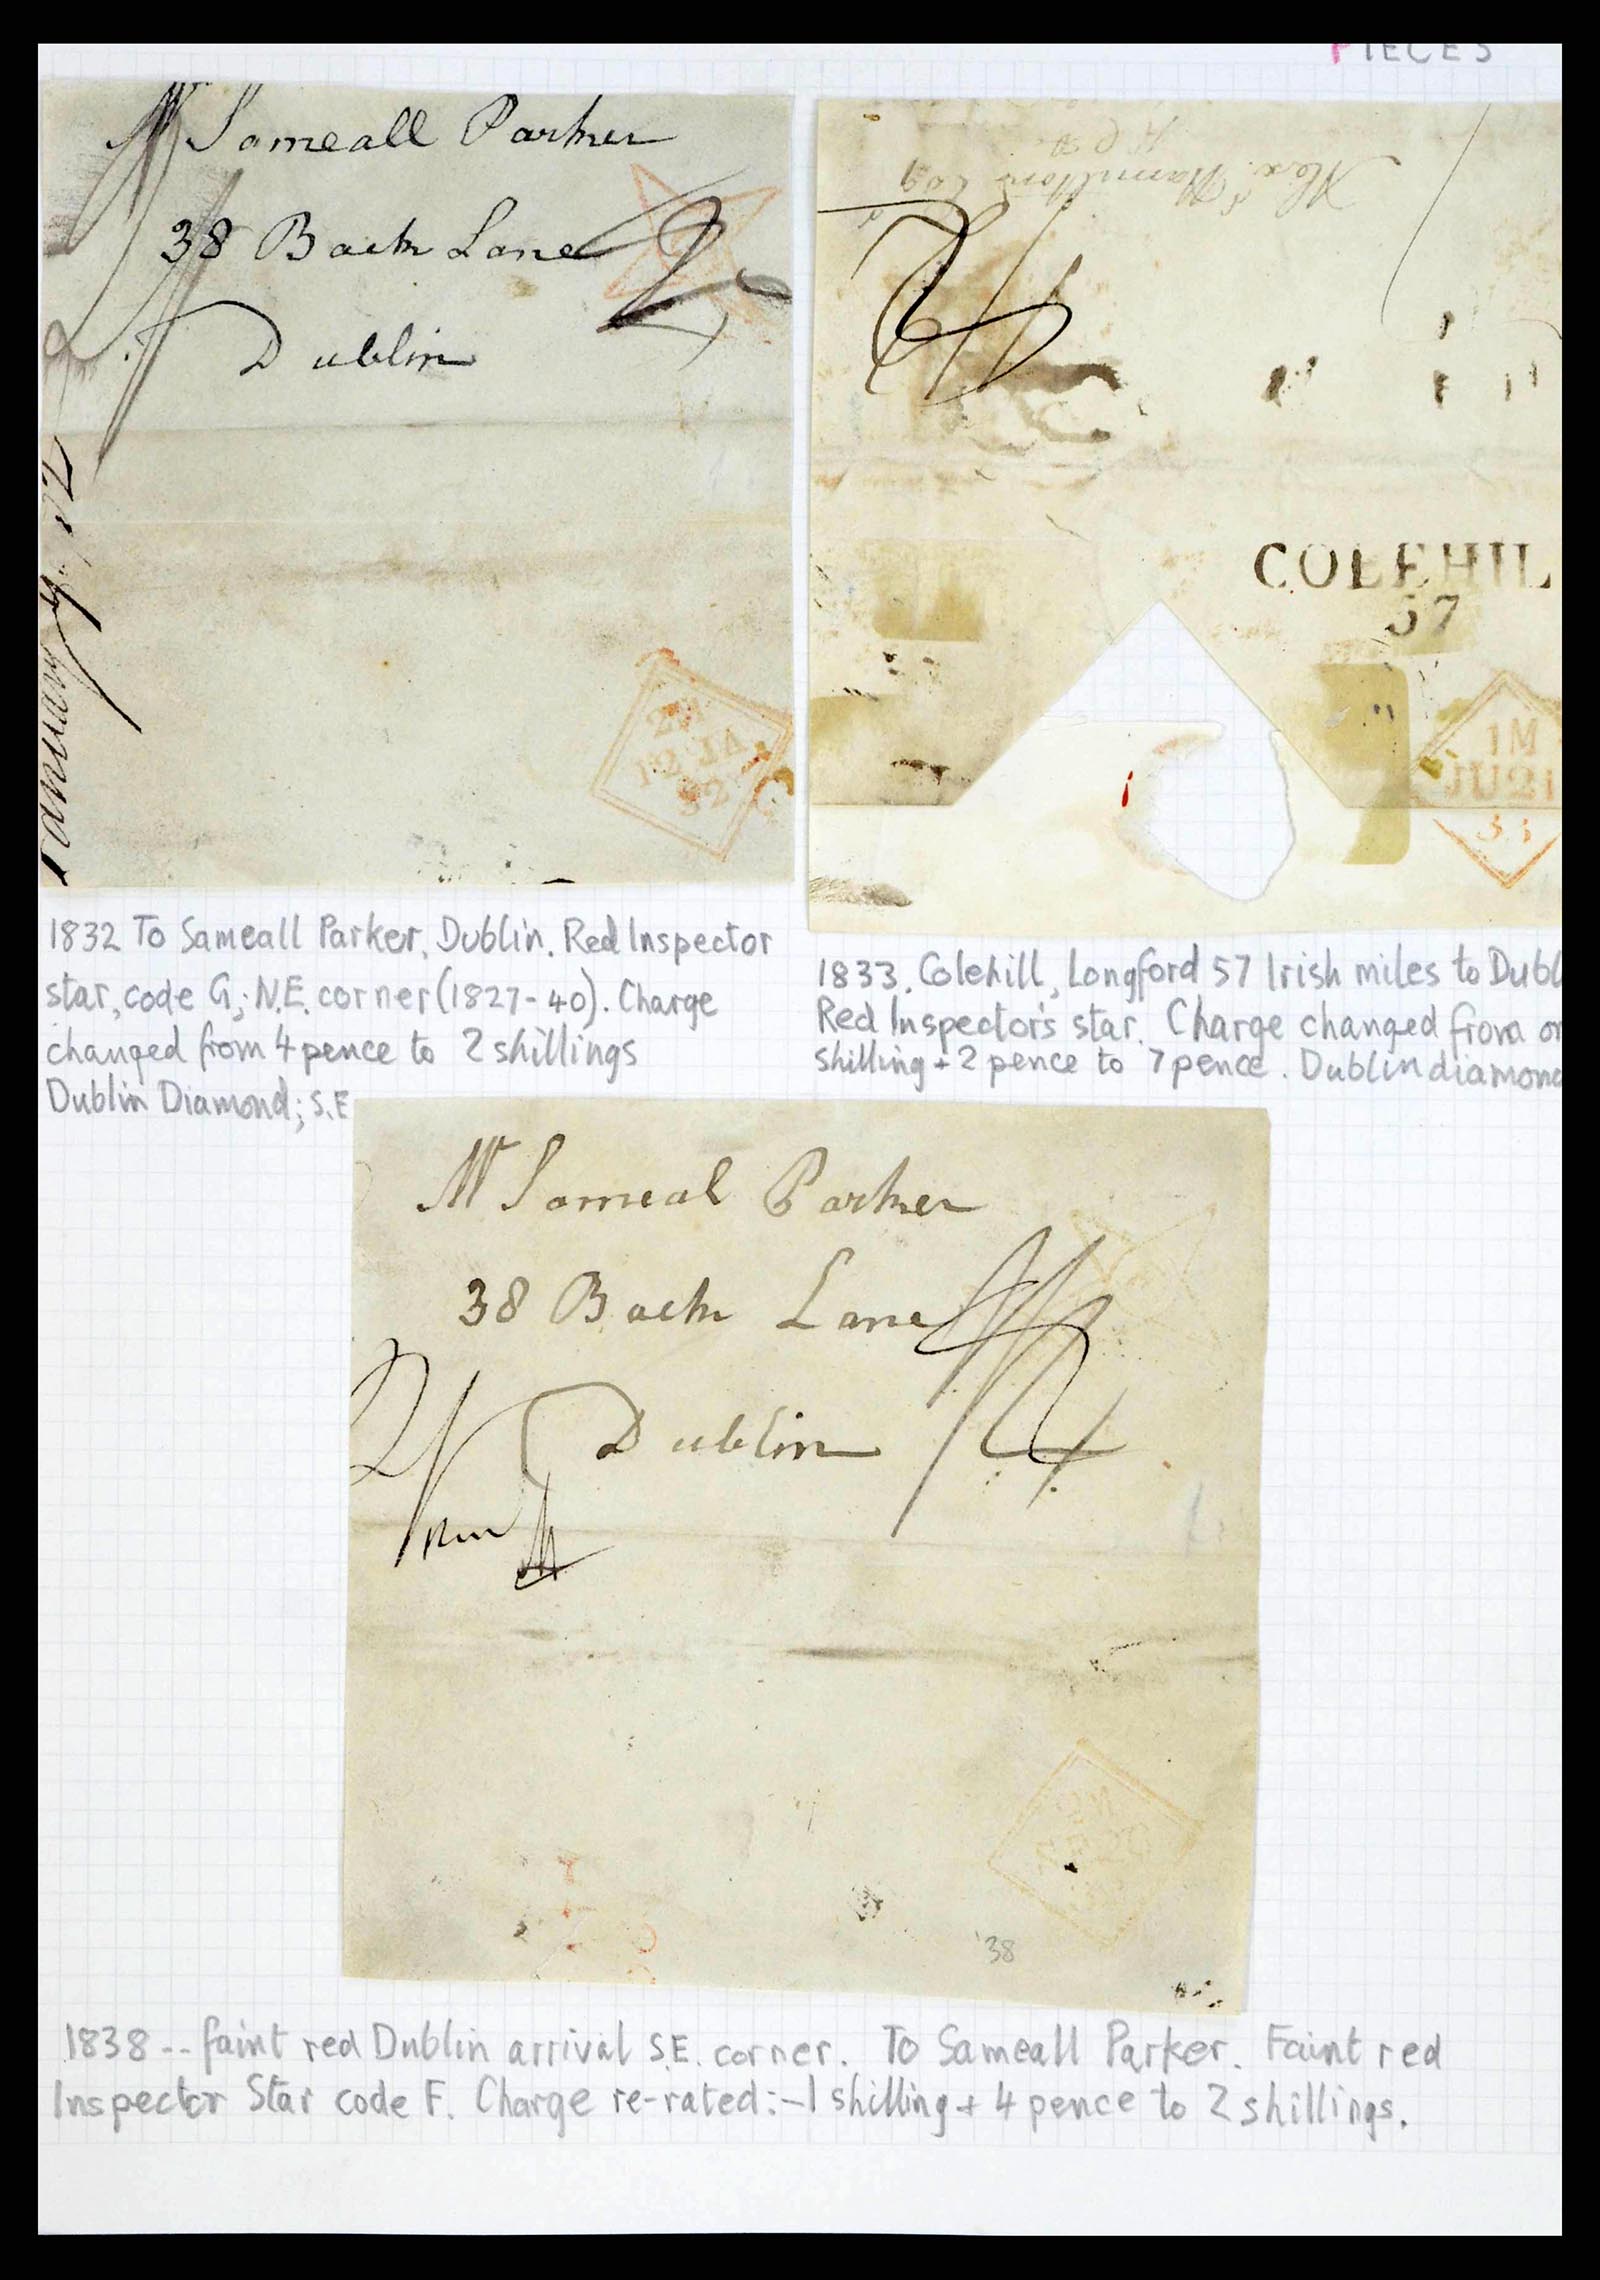 PIECES
Mr Sameall Parker
38 Back Lane
Dublin
January
2
12 JA
32
Alexr Hamilton Esq
COLEHIL
57
1M
JU21
33
1832 To Sameall Parker, Dublin. Red Inspector
star, code G; N.E. corner (1827-40). Charge
changed from 4 pence to 2 shillings
Dublin Diamond; S.E
1833. Colehill, Longford 57 Irish miles to Dubl
Red Inspector's star. Charge changed from on
shilling + 2 pence to 7 pence. Dublin diamond
Mr Sameal Parker
38 Back Lane
Dublin
2/
'38
1838 -- faint red Dublin arrival S.E. corner. To Sameall Parker. Faint red
Inspector Star code F. Charge re-rated:-1 shilling + 4 pence to 2 shillings.